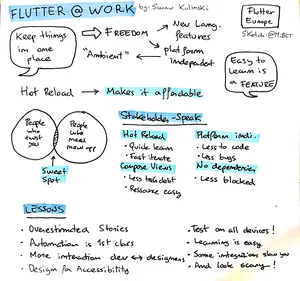 FLUTTER @ WORK by: Swav Kulinski
Flutter
Europe
Sketch: @M.BCT
Keep things
in one
place
FREEDOM
New Lang.
features
platform
independent
"Ambient"
Easy to
Learn is
a FEATURE
Hot Reload → Makes it affordable
People
who trust
you
People
who
meal
Sweet
Spot
Stakeholder-Speak
Hot Reload
• Quick learn
• Fast iterate
Compose Views
• Less tech debt
• Resource easy
Platform indi.
• Less to code
• Less bugs
No dependencies
• Less blocked
LESSONS
• Overestimated Stories
• Automation is 1st class
• More interaction dev ↔ designers
• Design for Accessibility
• Test on all devices!
• Learning is easy
• Some integrations slow you
• And look scary!